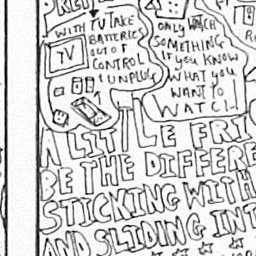 WITH TV TAKE
BATTERIES
OUT OF
CONTROL
& UNPLUG
TV
ONLY WATCH
SOMETHING
IF YOU KNOW
WHAT YOU
WANT TO
WATCH
A LITTLE FRI
BE THE DIFFERE
STICKING WITH
AND SLIDING INT